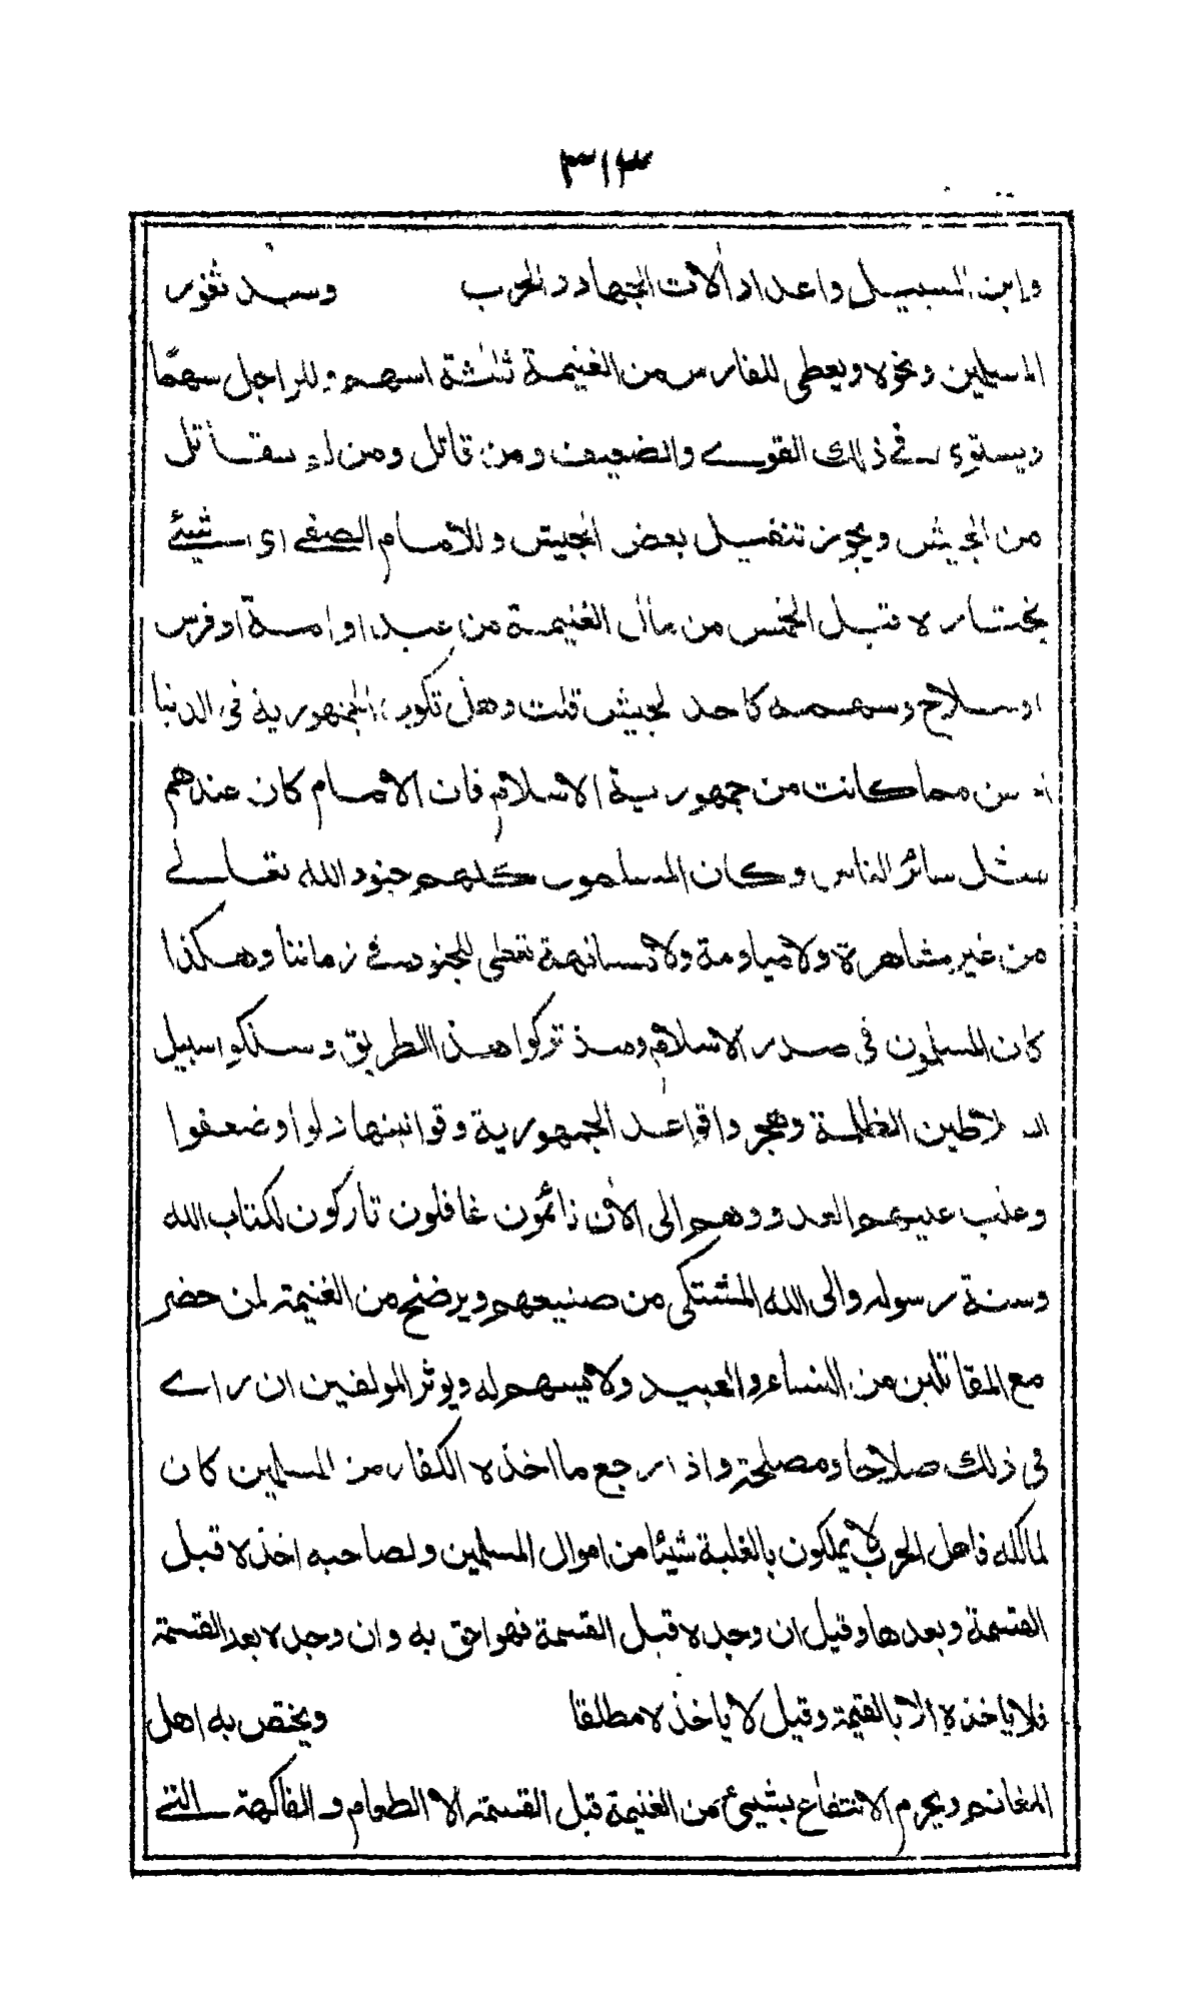 ٣١٣
وابن السبيل واعداد آلات الجهاد والحرب وسد ثغور
المسلمين ونحوه ويعطى للفارس من الغنيمة ثلثة اسهم وللراجل سهمًا
ويستوي في ذلك القوي والضعيف ومن قاتل ومن لم يقاتل
من الجيش ويجوز تنفيل بعض الجيش وللامام الصفي اي شيئ
يختاره قبل الخمس من مال الغنيمة من عبد او امة او فرس
او سلاح وسهمه كاحد الجيش قلت وهل تكون الجمهورية في الدنيا
احسن مما كانت من جمهورية الاسلام فان الامام كان عندهم
مثل سائر الناس وكان المسلمون كلهم جنود الله تعالى
من غير مشاهرة ولا مياومة ولا مسانهة تعطى للجنود في زماننا وهكذا
كان المسلمون في صدر الاسلام ومذ تركوا هذا الطريق وسلكوا سبيل
السلاطين الظلمة وهجروا قواعد الجمهورية وقوانينها ذلوا وضعفوا
وغلب عليهم العدو وهم الى الآن نائمون غافلون تاركون لكتاب الله
وسنة رسوله والى الله المشتكى من صنيعهم ويرضخ من الغنيمة لمن حضر
مع المقاتلين من النساء والعبيد ولا يسهم له ويوثر المولفين ان راے
في ذلك صلاحا ومصلحة واذا رجع ما اخذه الكفار من المسلمين كان
لمالكه فاهل الحرب لا يملكون بالغلبة شيئا من اموال المسلمين ولصاحبه اخذه قبل
القسمة وبعدها وقيل ان وجده قبل القسمة فهو احق به وان وجده بعد القسمة
فلا ياخذه الا بالقيمة وقيل لا ياخذه مطلقا ويختص به اهل
المغانم ويحرم الانتفاع بشيئ من الغنيمة قبل القسمة الا الطعام والفاكهة التي